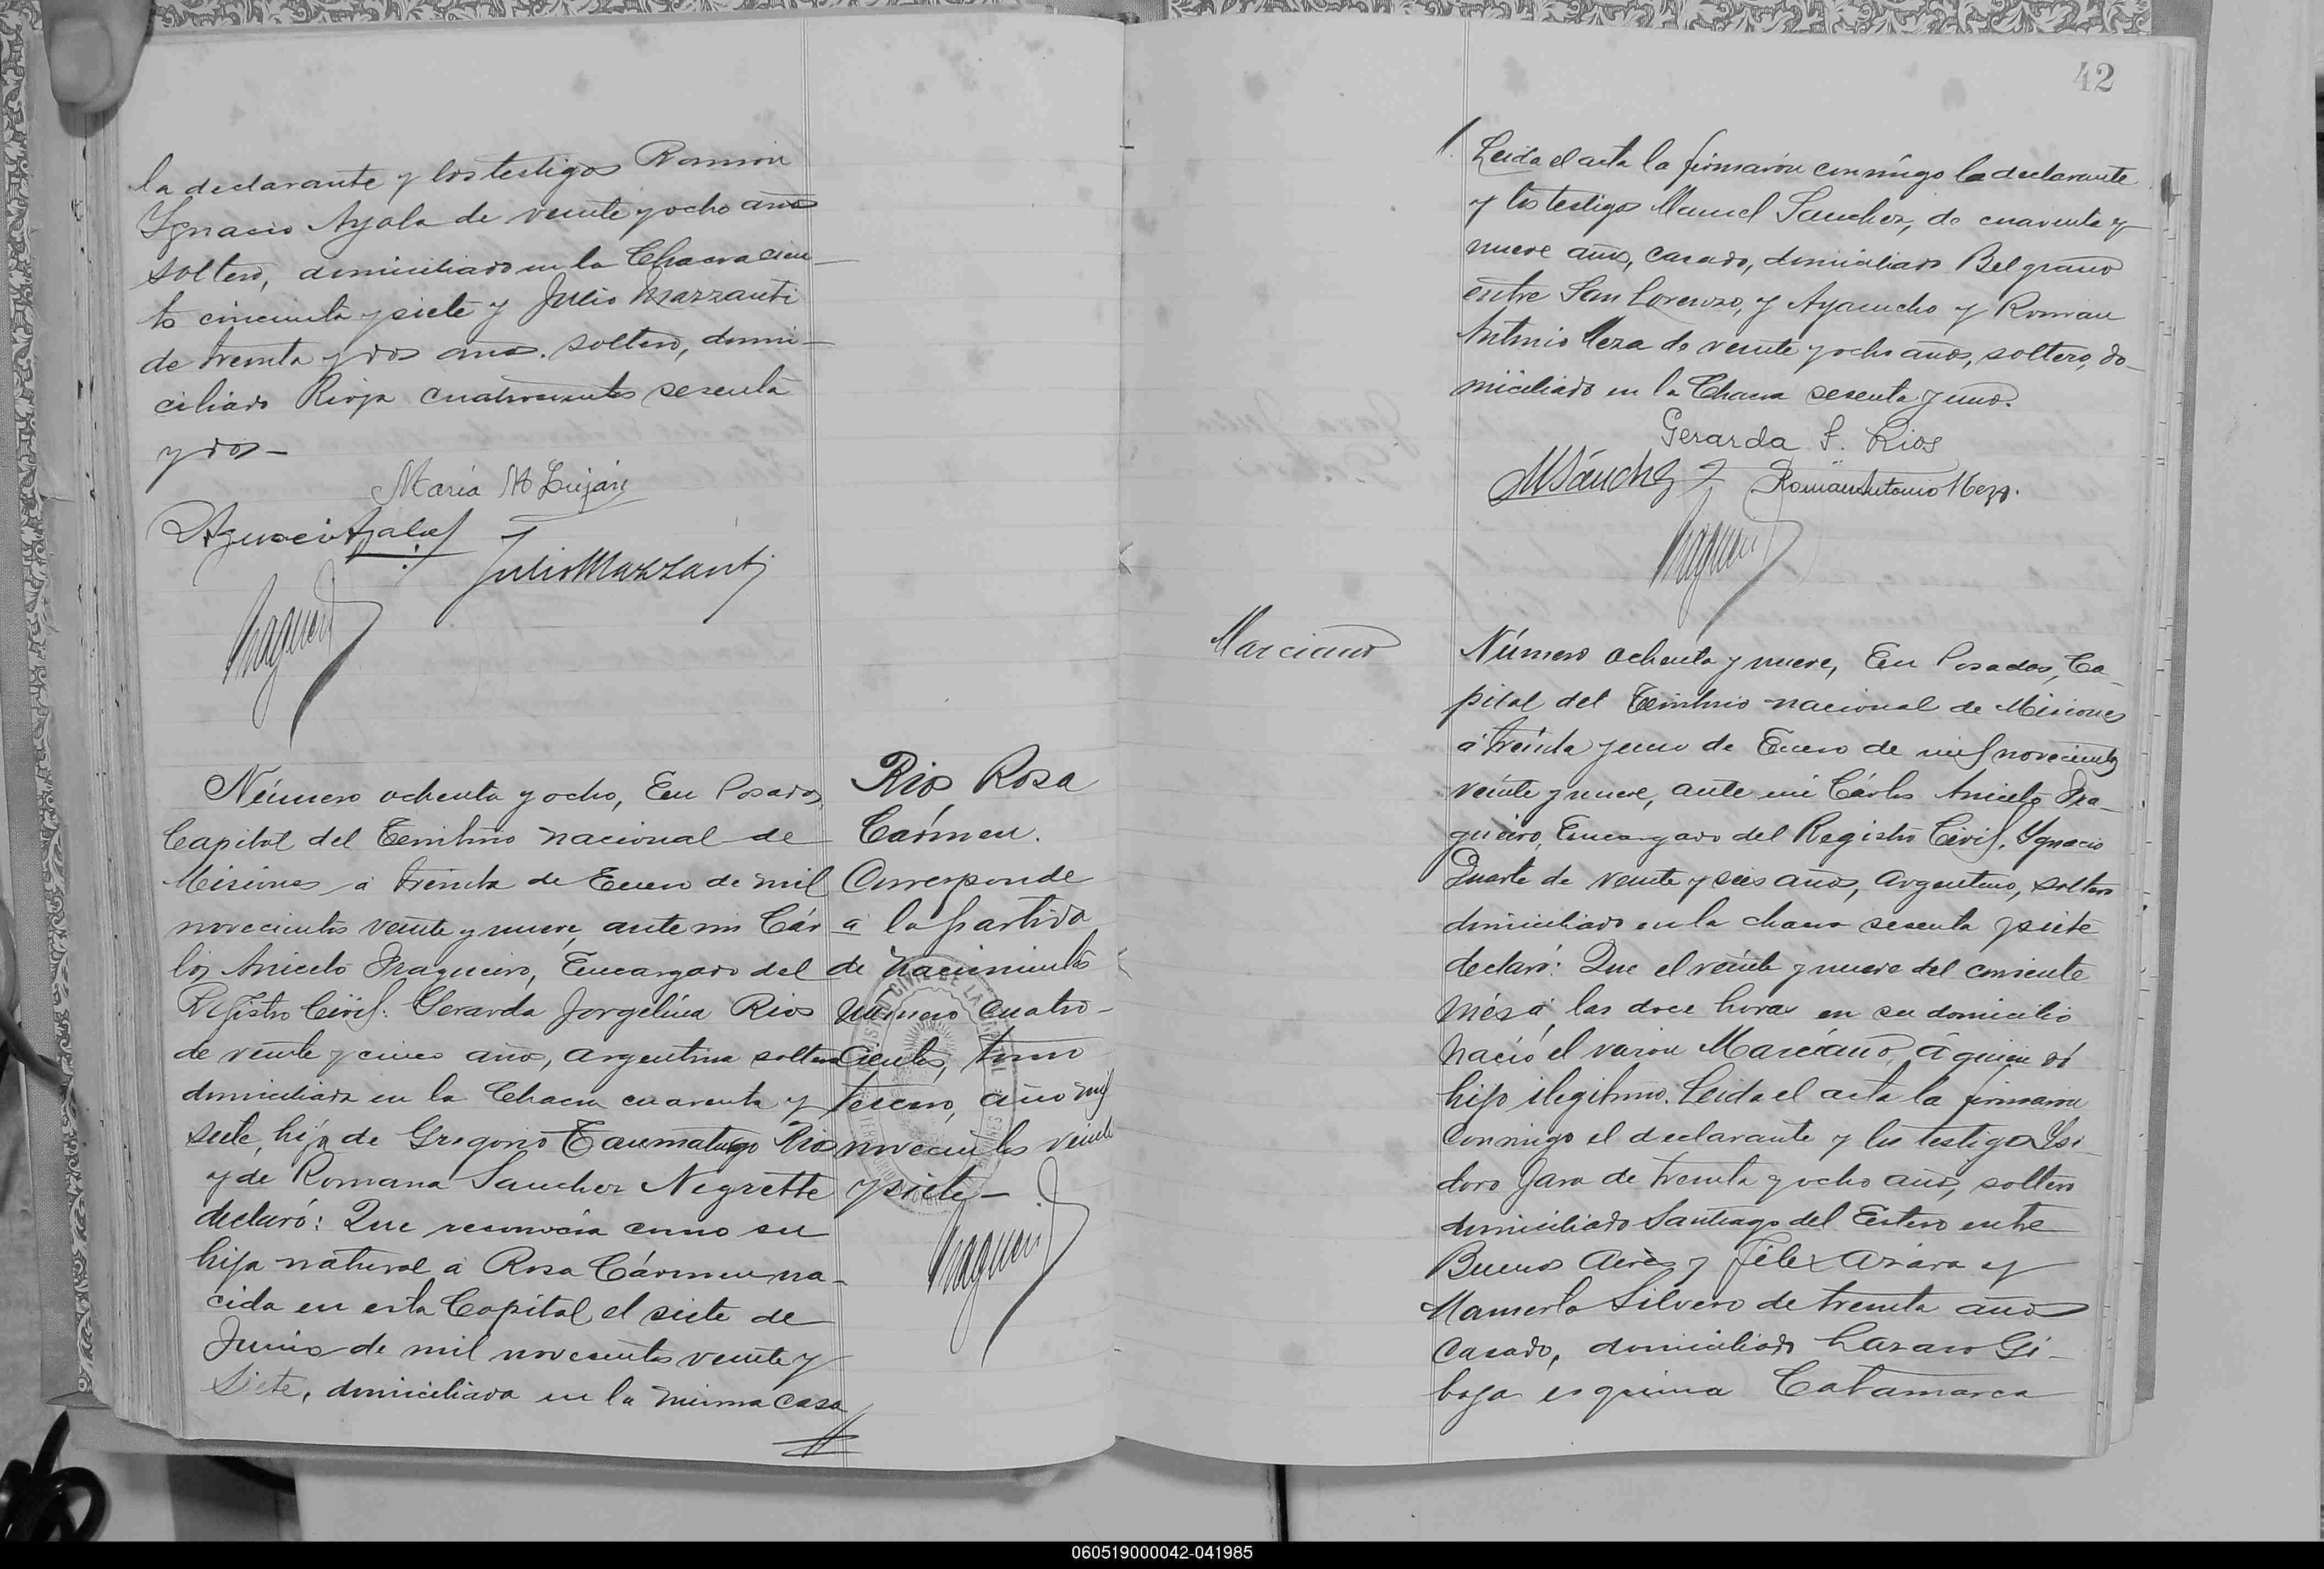 la declarante y los testigos Ramón
Ygnacio Ayala de veinte y ocho años
soltero, domiciliado en la Chacra cien-
to cincuenta y siete y Julio Mazzanti
de treinta y dos años. soltero, domi-
ciliado Rioja cuatrocientos sesenta
y dos-
María M Luján
R Ygnacio Ayala
Julio Mazzanti
Número ochenta y ocho, En Posadas,
Capital del Territorio nacional de
Misiones a treinta de Enero de mil
novecientos veinte y nueve, ante mi Cár
los Aniceto Fragueiro, Encargado del
Registro Civil: Gerarda Jorgelina Rios
de veinte y cinco años, argentina soltera
domiciliada en la Chacra cuarenta y
siete, hija de Gregorio Taumaturgo Rios
y de Romana Sanchez Negrette
declaró: Que reconocía como su
hija natural a Rosa Cármen na-
cida en esta Capital el siete de
Junio de mil novecientos veinte y
Siete, domiciliada en la misma casa
Rios Rosa
Cármen.
Corresponde
a la partida
de nacimiento
número cuatro-
cientos, tomo
tercero, año mil
novecientos veinte
y siete-
42
Leida el acta la firmaron conmigo la declarante
y los testigos Manuel Sanchez, de cuarenta y
nueve años, casado, domiciliado Belgrano
entre San Lorenzo, y Ayacucho y Roman
Antonio Meza de veinte y ocho años, soltero, do-
miciliado en la Chacra sesenta y uno.
Gerarda J. Rios
MSánchez Román Antonio Meza.
Marciano
Número ochenta y nueve, En Posadas, Ca-
pital del Territorio nacional de Misiones
a treinta y uno de Enero de mil novecientos
veinte y nueve, ante mi Cárlos Aniceto Fra-
gueiro, Encargado del Registro Civil, Ygnacio
Duarte de veinte y seis años, argentino, soltero
domiciliado en la chacra sesenta y siete
declaró: Que el veinte y nueve del corriente
més a las doce horas en su domicilio
nació el varon Marciano, a quien dí
hijo ilegítimo. Leida el acta la firmaron
conmigo el declarante y los testigos Ysi-
doro Jara de treinta y ocho años, soltero
domiciliado Santiago del Estero entre
Buenos Aires y Félix Azara y
Mamerto Silvero de treinta años
casado, domiciliado Lazaro Gi-
boga esquina Catamarca
060519000042-041985